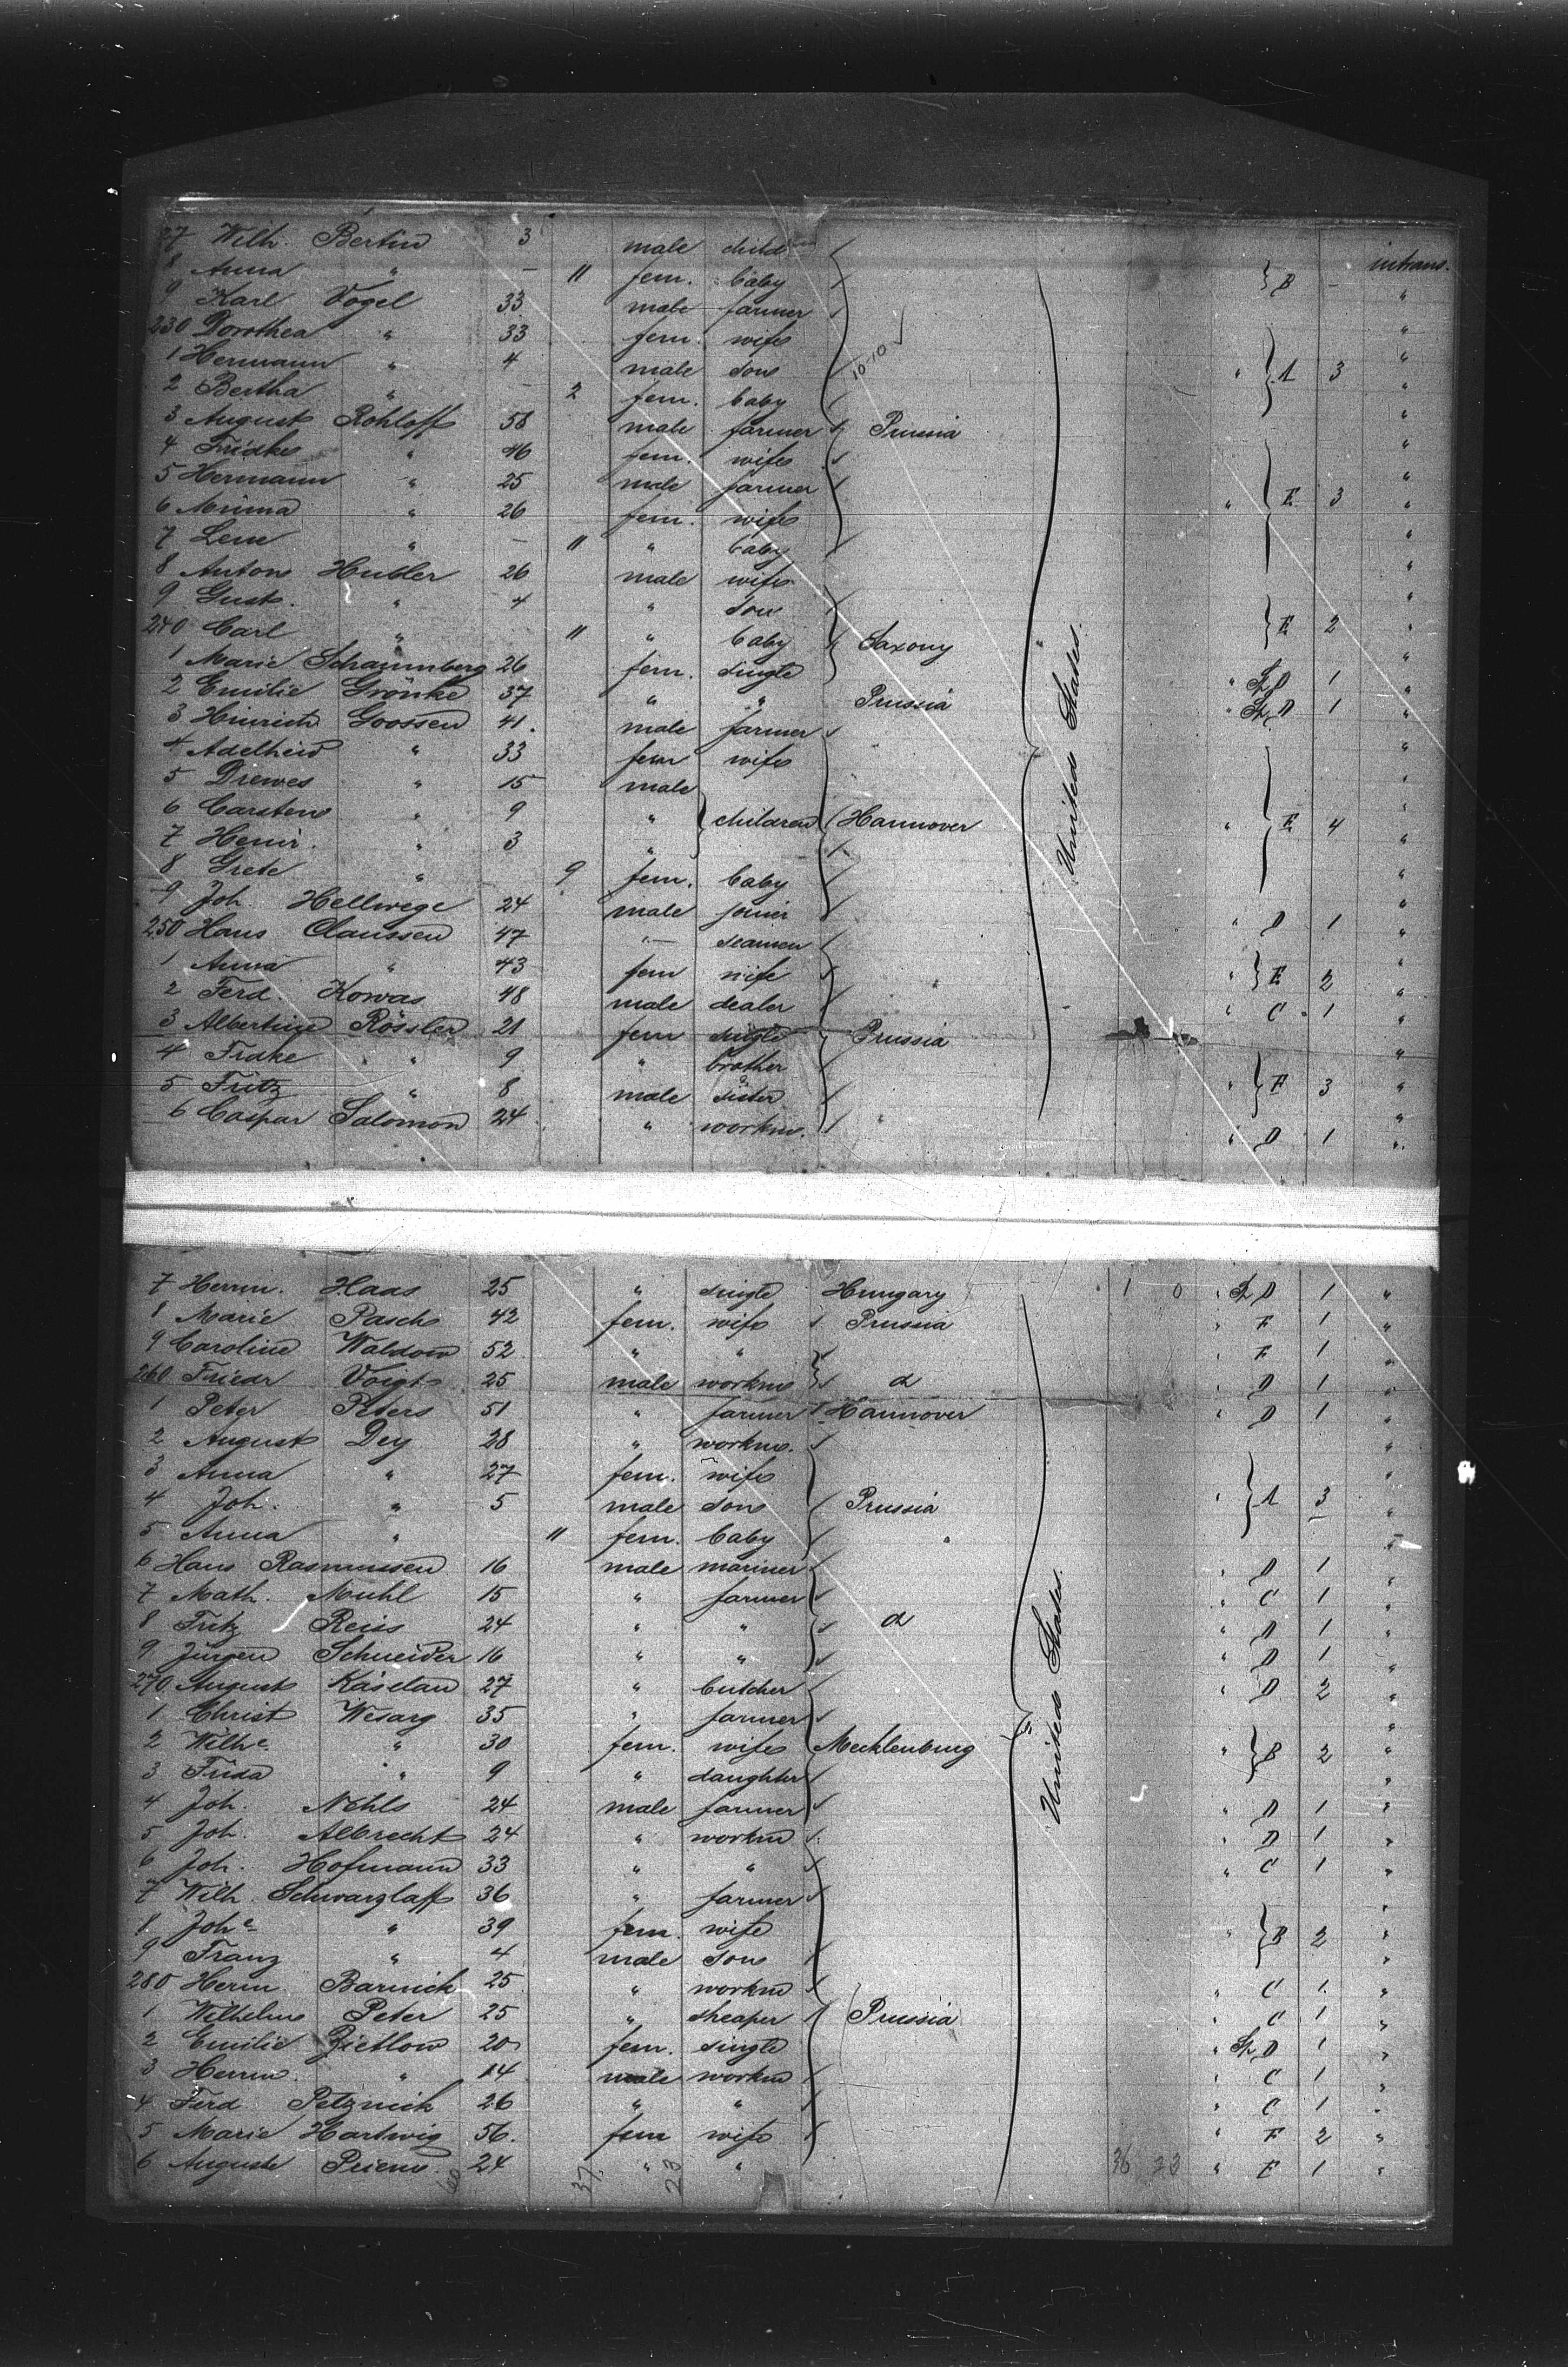 27 Wilh. Bertin 3 male child intrans.
8 Anna " - 11 fem. baby B - "
9 Karl Vogel 33 male farmer "
230 Dorothea " 33 fem. wife "
1 Hermann " 4 male son 10-10 " A 3 "
2 Bertha " - 2 fem. baby "
3 August Rohloff 58 male farmer Prussia "
4 Fridke " 46 fem. wife "
5 Hermann " 25 male farmer " E 3 "
6 Minna " 26 fem. wife "
7 Lene " - 11 " baby "
8 Anton Hubler 26 male wife "
9 Gust. " 4 " son E 2 "
240 Carl " 11 " baby Saxony "
1 Marie Schaumberg 26 fem. single " D 1 "
2 Emilie Grönke 37 " " Prussia " D 1 "
3 Hinrich Goossen 41. male farmer "
4 Adelheid " 33 fem wife "
5 Drewes " 15 male "
6 Carsten " 9 " children Hannover " E 4 "
7 Heinr. " 3 " "
8 Grete " 9 fem. baby "
9 Joh. Hellwege 24 male joiner " D 1 "
250 Hans Claussen 47 " seamen "
1 Anna " 43 fem wife " " E 2 "
2 Ferd. Kowas 48 male dealer " C 1 "
3 Albertine Rössler 21 fem single Prussia "
4 Fridke " 9 " brother "
5 Fritz " 8 male & sister " E 3 "
6 Caspar Salomon 24 " workm. " " D 1 "
United States.
7 Herrm. Haas 25 " single Hungary 1 0 " D 1 "
8 Marie Pasch 42 fem. wife Prussia " E 1 "
9 Caroline Waldow 52 " " " E 1 "
260 Friedr Voigt 25 male workm d " D 1 "
1 Peter Peters 51 " farmer Hannover " D 1 "
2 August Dey 28 " workm. "
3 Anna " 27 fem. wife "
4 Joh. " 5 male son Prussia " A 3 "
5 Anna " 11 fem. baby " "
6 Hans Rasmussen 16 male mariner " D 1 "
7 Math. Muhl 15 " farmer " C 1 "
8 Fritz Reiss 24 " " d " D 1 "
9 Jürgen Schneider 16 " " " D 1 "
270 August Käselau 27 " butcher " D 2 "
1 Christ Wesarg 35 " farmer "
2 Wilhe " 30 fem. wife Mecklenburg " B 2 "
3 Frida " 9 " daughter "
4 Joh. Nehls 24 male farmer " D 1 "
5 Joh. Albrecht 24 " workm " D 1 "
6 Joh. Hofmann 33 " " " C 1 "
7 Wilh. Schwarzlaff 36 " farmer "
8 Johe " 39 fem. wife " B 2 "
9 Franz " 4 male son "
280 Herm. Barnick 25 " workm " C 1. "
1 Wilhelm Peter 25 " sheaper Prussia " C 1 "
2 Emilie Zietlow 20 fem. single " D 1 "
3 Herrm. " 14 male workm " C 1 "
4 Ferd. Petznick 26 " " " C 1 "
5 Marie Hartwig 56. fem wife " E 2 "
6 Auguste Priem 24 " " 36 23 " E 1 "
United States.
60 37 23